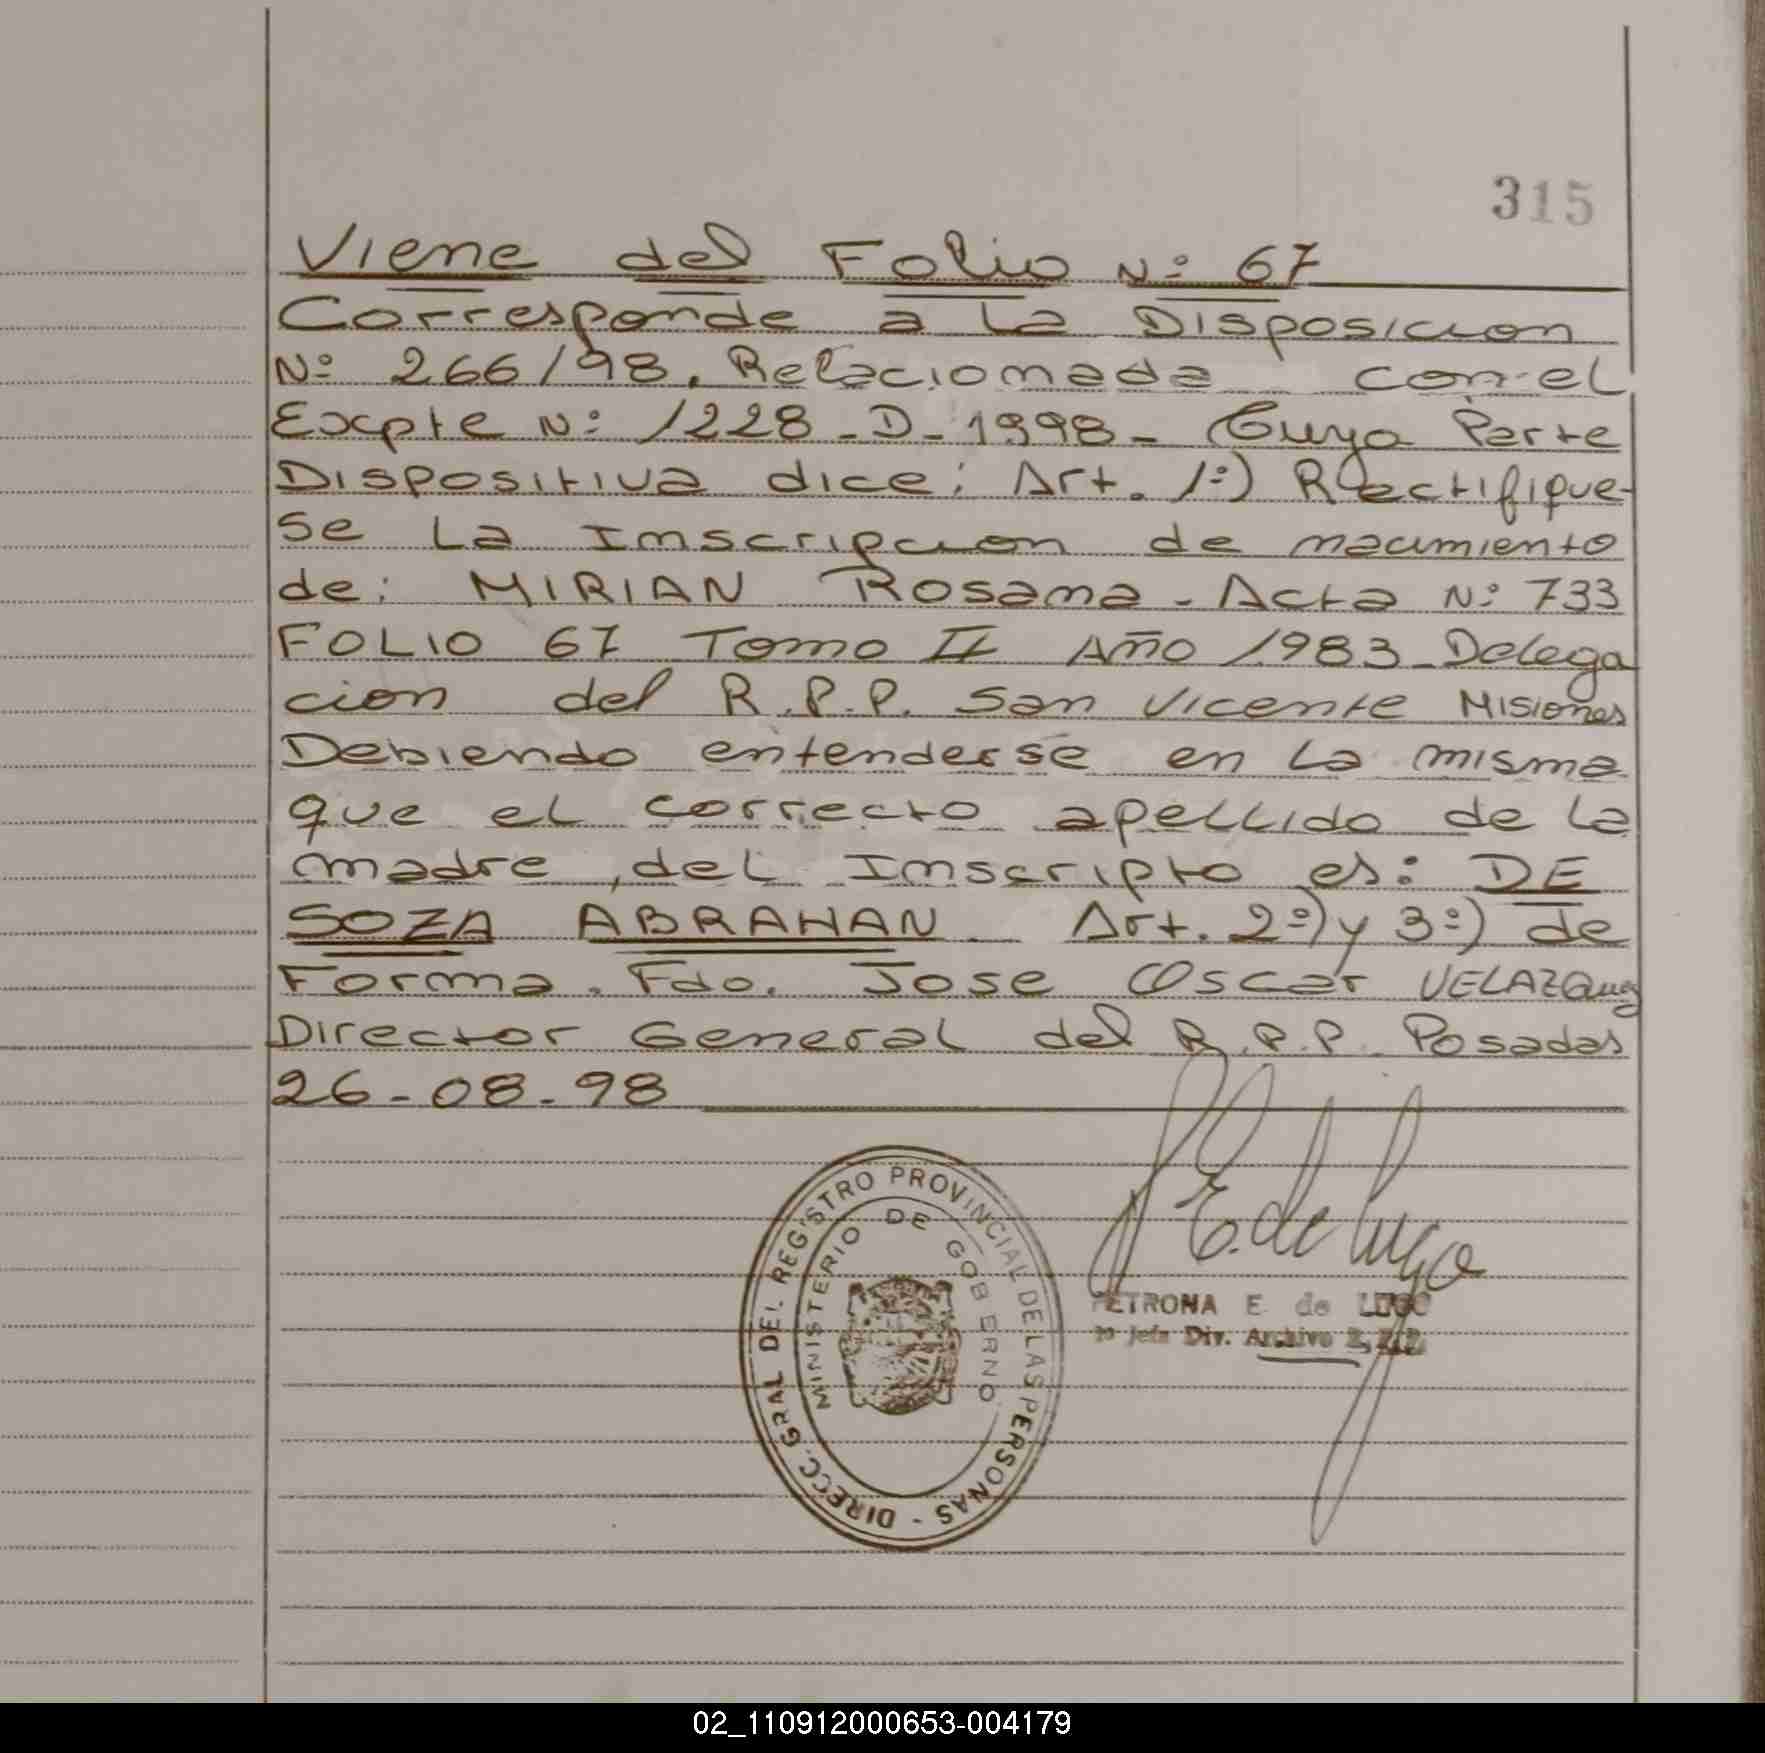 315
Viene del Folio Nº 67
Corresponde a la Disposicion
Nº 266/98. Relacionada con el
Expte Nº 1228-D-1998- Cuya Parte
Dispositiva dice: Art. 1º) Rectifique-
se la Inscripcion de nacimiento
de: MIRIAN Rosana - Acta Nº 733
FOLIO 67 Tomo II Año 1983 - Delega
cion del R.P.P. San Vicente Misiones
Debiendo entenderse en la misma
que el correcto apellido de la
madre, del Inscripto es: DE
SOZA ABRAHAN Art. 2º) y 3º) de
Forma. Fdo. Jose Oscar VELAZQuez
Director General del R.P.P. Posadas
26-08-98
DIRECC. GRAL DEL REGISTRO PROVINCIAL DE LAS PERSONAS -
MINISTERIO DE GOBIERNO
P E. de Lugo
PETRONA E. de LUGO
Jefa Div. Archivo
02_110912000653-004179